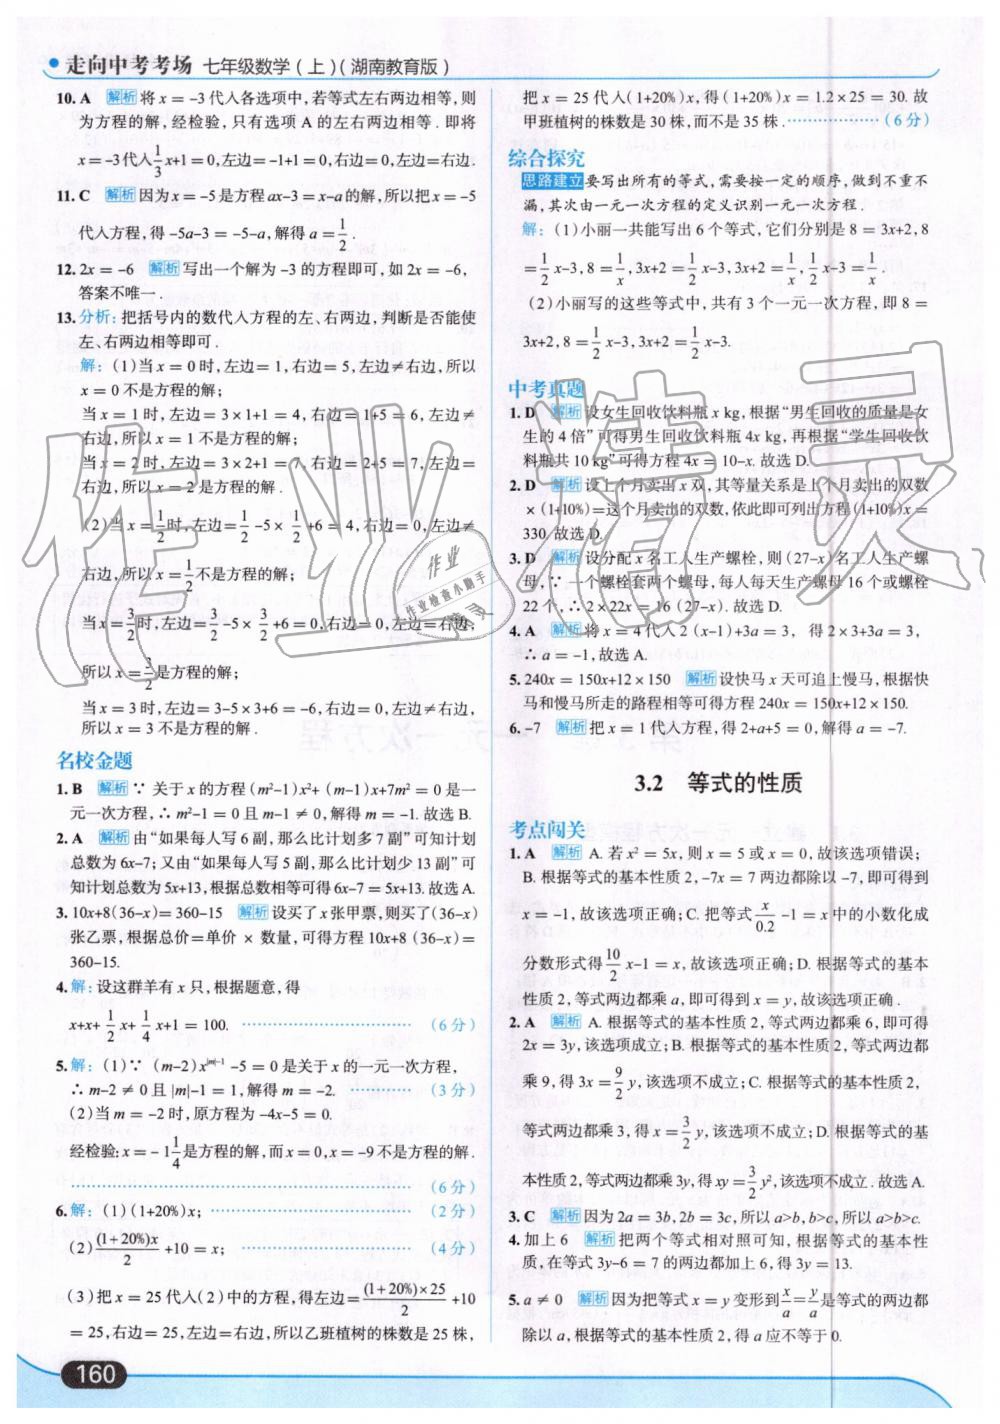 走向中考考场 七年级数学(上)(湖南教育版)
10. A 解析 将 x = -3 代入各选项中,若等式左右两边相等,则
为方程的解,经检验,只有选项 A 的左右两边相等. 即将
x = -3代入1/3x+1 = 0,左边= -1+1 = 0,右边= 0,左边= 右边.
11. C 解析 因为 x = -5 是方程 ax-3 = x-a 的解,所以把 x = -5
代入方程,得 -5a-3 = -5-a,解得 a = 1/2.
12. 2x = -6 解析 写出一个解为 -3 的方程即可,如 2x = -6,
答案不唯一.
13. 分析:把括号内的数代入方程的左、右两边,判断是否能使
左、右两边相等即可.
解:(1)当 x = 0 时,左边= 1,右边= 5,左边≠右边,所以
x = 0 不是方程的解;
当 x = 1 时,左边= 3×1+1 = 4,右边= 1+5 = 6,左边≠
右边,所以 x = 1 不是方程的解;
当 x = 2 时,左边= 3×2+1 = 7,右边= 2+5 = 7,左边=
右边,所以 x = 2 是方程的解.
(2)当 x = 1/2时,左边= 1/2-5× 1/2+6 = 4,右边= 0,左边≠
右边,所以 x = 1/2不是方程的解;
当 x = 3/2时,左边= 3/2-5× 3/2+6 = 0,右边= 0,左边= 右边,
所以 x = 3/2是方程的解;
当 x = 3 时,左边= 3-5×3+6 = -6,右边= 0,左边≠右边,
所以 x = 3 不是方程的解.
名校金题
1. B 解析 ∵ 关于 x 的方程 (m²-1)x²+ (m-1)x+7m² = 0 是一
元一次方程,∴ m²-1 = 0 且 m-1 ≠ 0,解得 m = -1. 故选 B.
2. A 解析 由“如果每人写 6 副,那么比计划多 7 副”可知计划
总数为 6x-7;又由“如果每人写 5 副,那么比计划少 13 副”可
知计划总数为 5x+13,根据总数相等可得 6x-7 = 5x+13. 故选 A.
3. 10x+8(36-x) = 360-15 解析 设买了 x 张甲票,则买了(36-x)
张乙票,根据总价=单价 × 数量,可得方程 10x+8 (36-x) =
360-15.
4. 解:设这群羊有 x 只,根据题意,得
x+x+ 1/2 x+ 1/4 x+1 = 100. (6 分)
5. 解:(1)∵ (m-2)x^{|m|-1} -5 = 0 是关于 x 的一元一次方程,
∴ m-2 ≠ 0 且 |m|-1 = 1,解得 m = -2. (3 分)
(2)当 m = -2 时,原方程为 -4x-5 = 0.
经检验:x = - 1 1/4 是方程的解,而 x = 0,x = -9 不是方程的解.
(6 分)
6. 解:(1)(1+20%)x; (2 分)
(2) (1+20%)x/2 +10 = x; (4 分)
(3)把 x = 25 代入(2)中的方程,得左边= (1+20%)×25/2 +10
= 25,右边= 25,左边= 右边,所以乙班植树的株数是 25 株,
160
把 x = 25 代入(1+20%)x,得(1+20%)x = 1.2×25 = 30. 故
甲班植树的株数是 30 株,而不是 35 株. (6 分)
综合探究
思路建立 要写出所有的等式,需要按一定的顺序,做到不重不
漏,其次由一元一次方程的定义识别一元一次方程.
解:(1)小丽一共能写出 6 个等式,它们分别是 8 = 3x+2,8
= 1/2 x-3,8 = 1/x,3x+2 = 1/2 x-3,3x+2 = 1/x,1/2 x-3 = 1/x.
(2)小丽写的这些等式中,共有 3 个一元一次方程,即 8 =
3x+2,8 = 1/2 x-3,3x+2 = 1/2 x-3.
中考真题
1. D 解析 设女生回收饮料瓶 x kg,根据“男生回收的质量是女
生的 4 倍”可得男生回收饮料瓶 4x kg,再根据“学生回收饮
料瓶共 10 kg”可得方程 4x = 10-x. 故选 D.
2. D 解析 设上个月卖出 x 双,其等量关系是上个月卖出的双数
×(1+10%)=这个月卖出的双数,依此即可列出方程(1+10%)x =
330. 故选 D.
3. D 解析 设分配 x 名工人生产螺栓,则 (27-x) 名工人生产螺
母,∵ 一个螺栓套两个螺母,每人每天生产螺母 16 个或螺栓
22 个,∴ 2×22x = 16 (27-x). 故选 D.
4. A 解析 将 x = 4 代入 2 (x-1)+3a = 3, 得 2×3+3a = 3,
∴ a = -1,故选 A.
5. 240x = 150x+12×150 解析 设快马 x 天可追上慢马,根据快
马和慢马所走的路程相等可得方程 240x = 150x+12×150.
6. -7 解析 把 x = 1 代入方程,得 2+a+5 = 0,解得 a = -7.
3.2 等式的性质
考点闯关
1. A 解析 A. 若 x² = 5x,则 x = 5 或 x = 0,故该选项错误;
B. 根据等式的基本性质 2,-7x = 7 两边都除以 -7,即可得到
x = -1,故该选项正确;C. 把等式 x/0.2 -1 = x 中的小数化成
分数形式得 10/2 x-1 = x,故该选项正确;D. 根据等式的基本
性质 2,等式两边都乘 a,即可得到 x = y,故该选项正确.
2. A 解析 A. 根据等式的基本性质 2,等式两边都乘 6,即可得
2x = 3y,该选项成立;B. 根据等式的基本性质 2,等式两边都
乘 9,得 3x = 9/2 y,该选项不成立;C. 根据等式的基本性质 2,
等式两边都乘 3,得 x = 3/2 y,该选项不成立;D. 根据等式的基
本性质 2,等式两边都乘 3y,得 xy = 3/2 y²,该选项不成立. 故选 A.
3. C 解析 因为 2a = 3b,2b = 3c,所以 a>b,b>c,所以 a>b>c.
4. 加上 6 解析 把两个等式相对照可知,根据等式的基本性
质,在等式 3y-6 = 7 的两边都加上 6,得 3y = 13.
5. a ≠ 0 解析 因为把等式 x = y 变形到 x/a = y/a 是等式的两边都
除以 a,根据等式的基本性质 2,得 a 应不等于 0.
作业精灵
作业
作业检查小助手